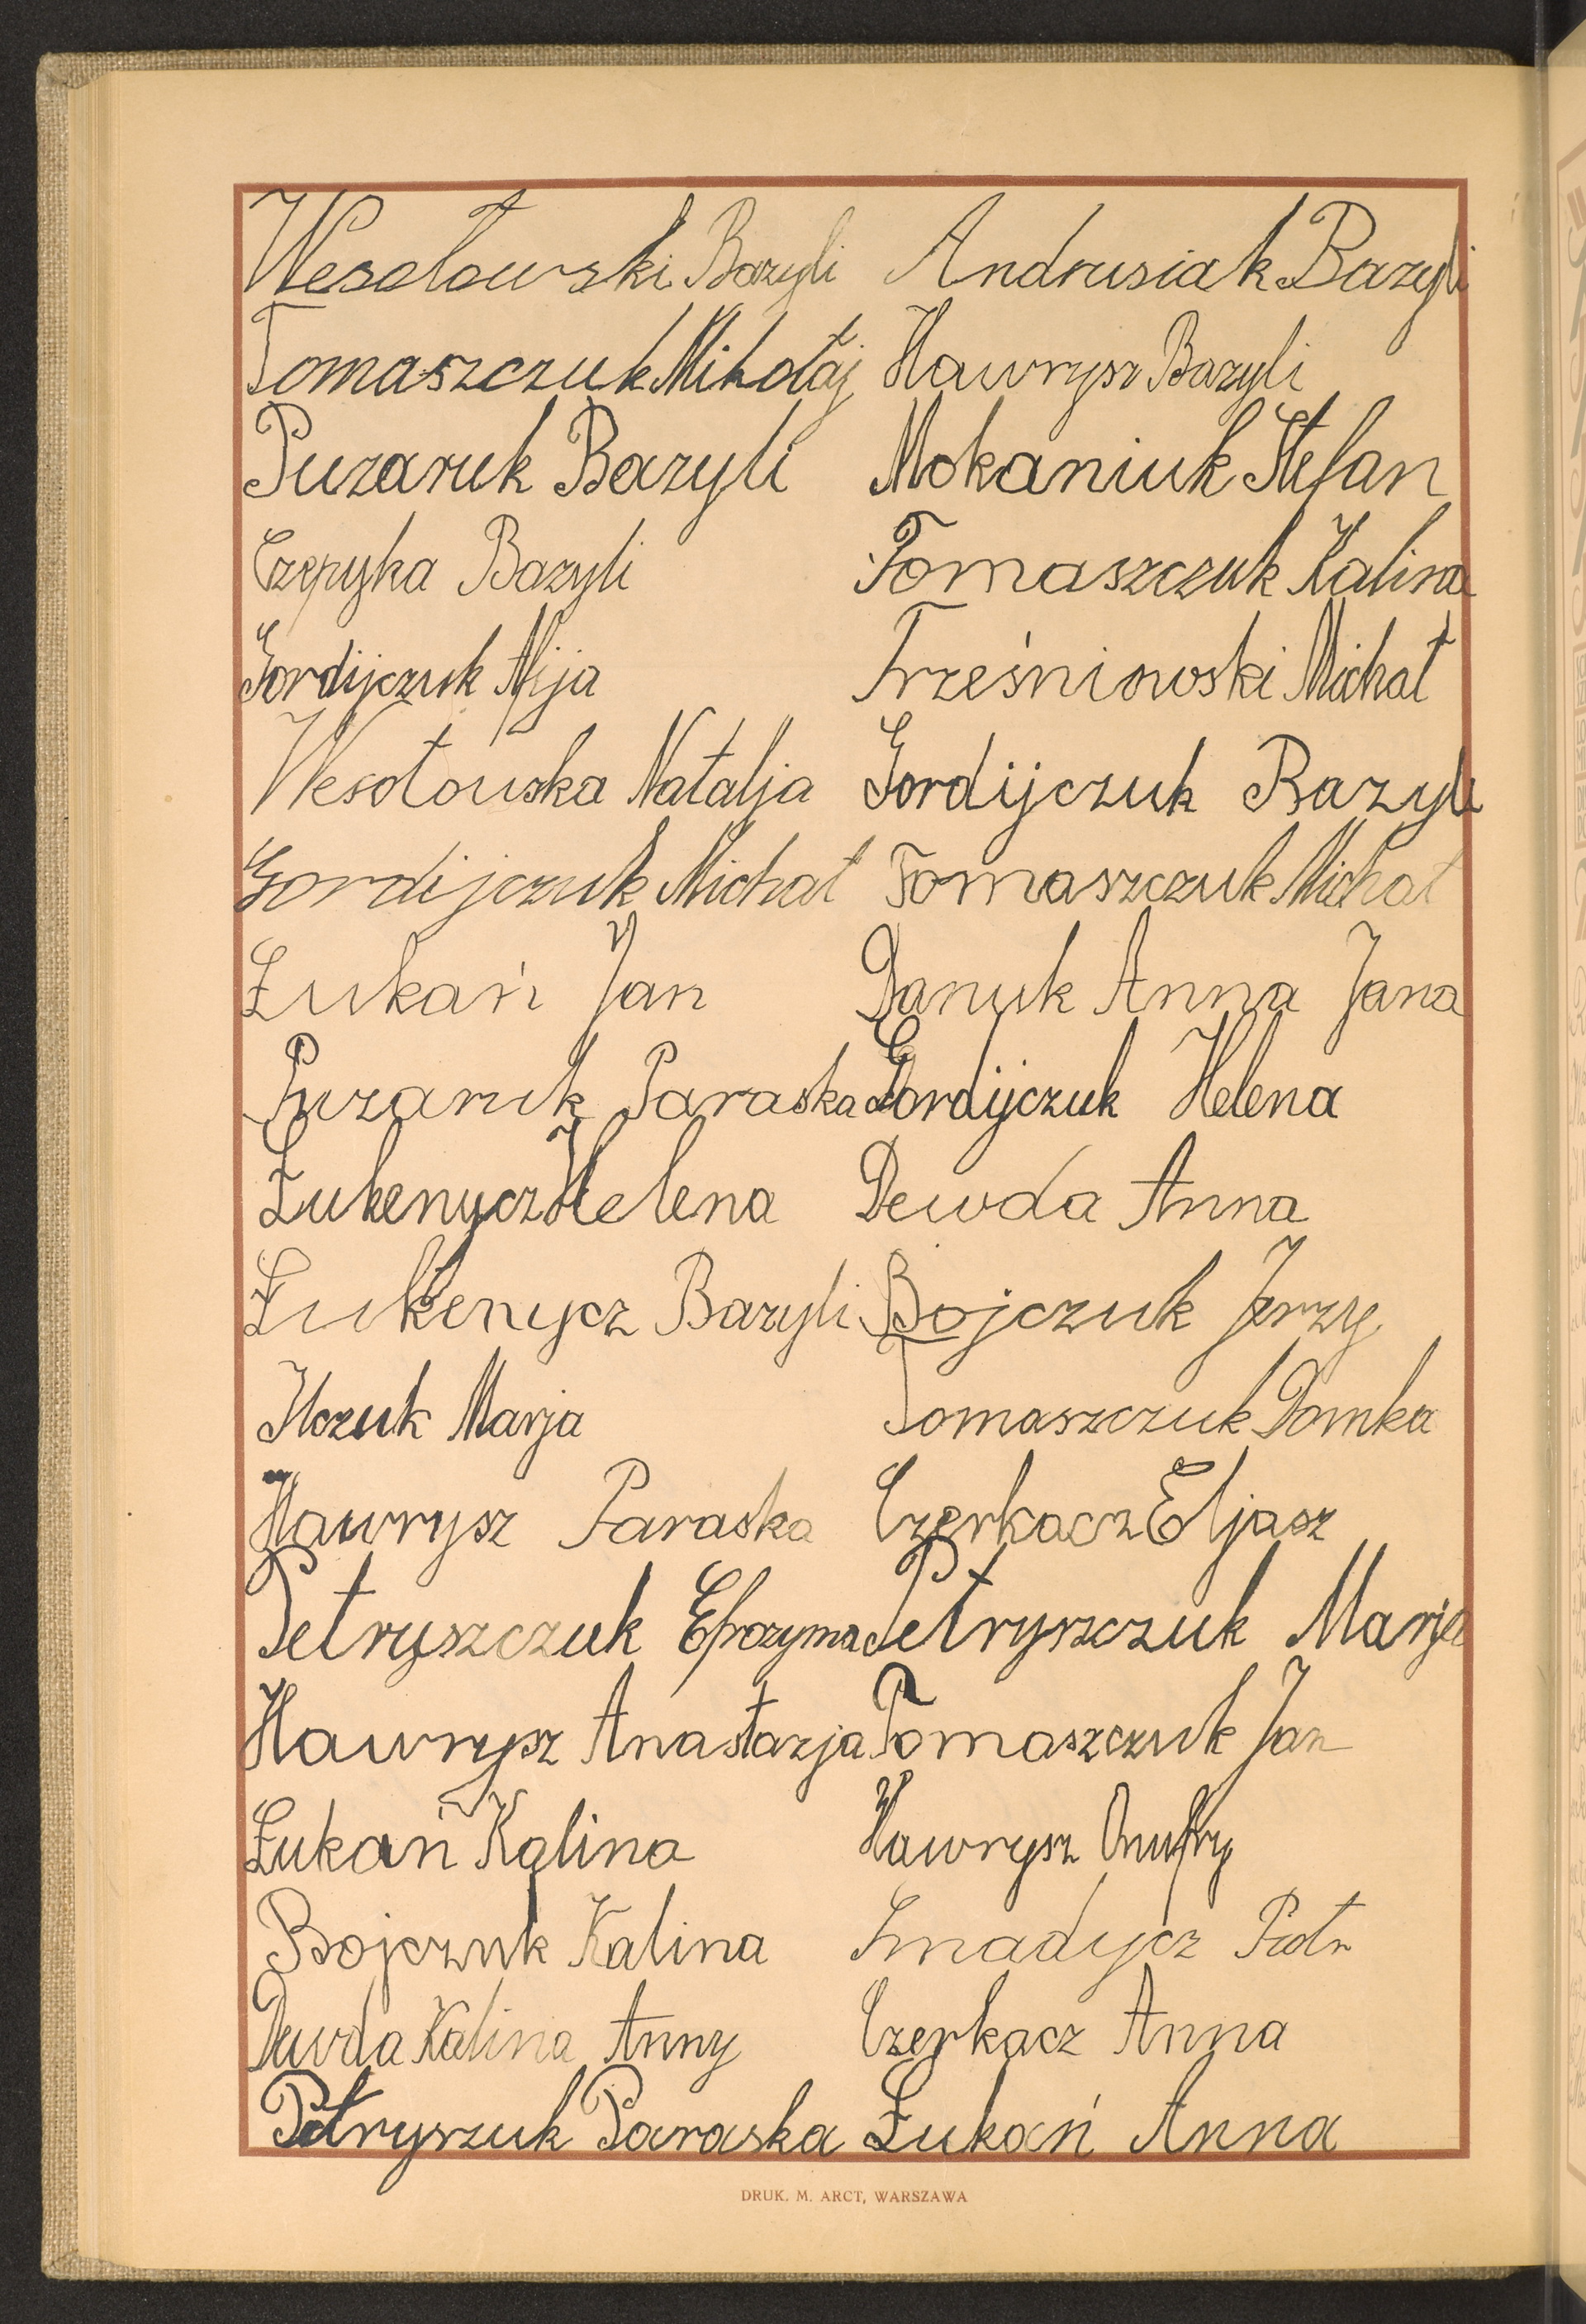 Wesołowski Bazyli Andrusiak Bazyli
Tomaszczuk Mikołaj Hawrysz Bazyli
Puzaruk Bazyli Mokaniuk Stefan
Czepyka Bazyli Tomaszczuk Kalina
Gordijczuk Ilija Trześniowski Michał
Wesołowska Natalja Gordijczuk Bazyli
Gordijczuk Michał Tomaszczuk Michał
Łukań Jan Danuk Anna Jana
Puzaruk Paraska Gordijczuk Helena
Łukenycz Helena Dewda Anna
Łukenycz Bazyli Bojczuk Jerzy
Ilczuk Marja Tomaszczuk Domka
Hawrysz Paraska Czerkacz Eljasz
Petryszczuk Efrozyma Petryszczuk Marja
Hawrysz Anastazja Tomaszczuk Jan
Łukań Kalina Hawrysz Onufry
Bojczuk Kalina Smadycz Piotr
Dewda Kalina Anny Czerkacz Anna
Petryszuk Paraska Łukań Anna
DRUK. M. ARCT, WARSZAWA